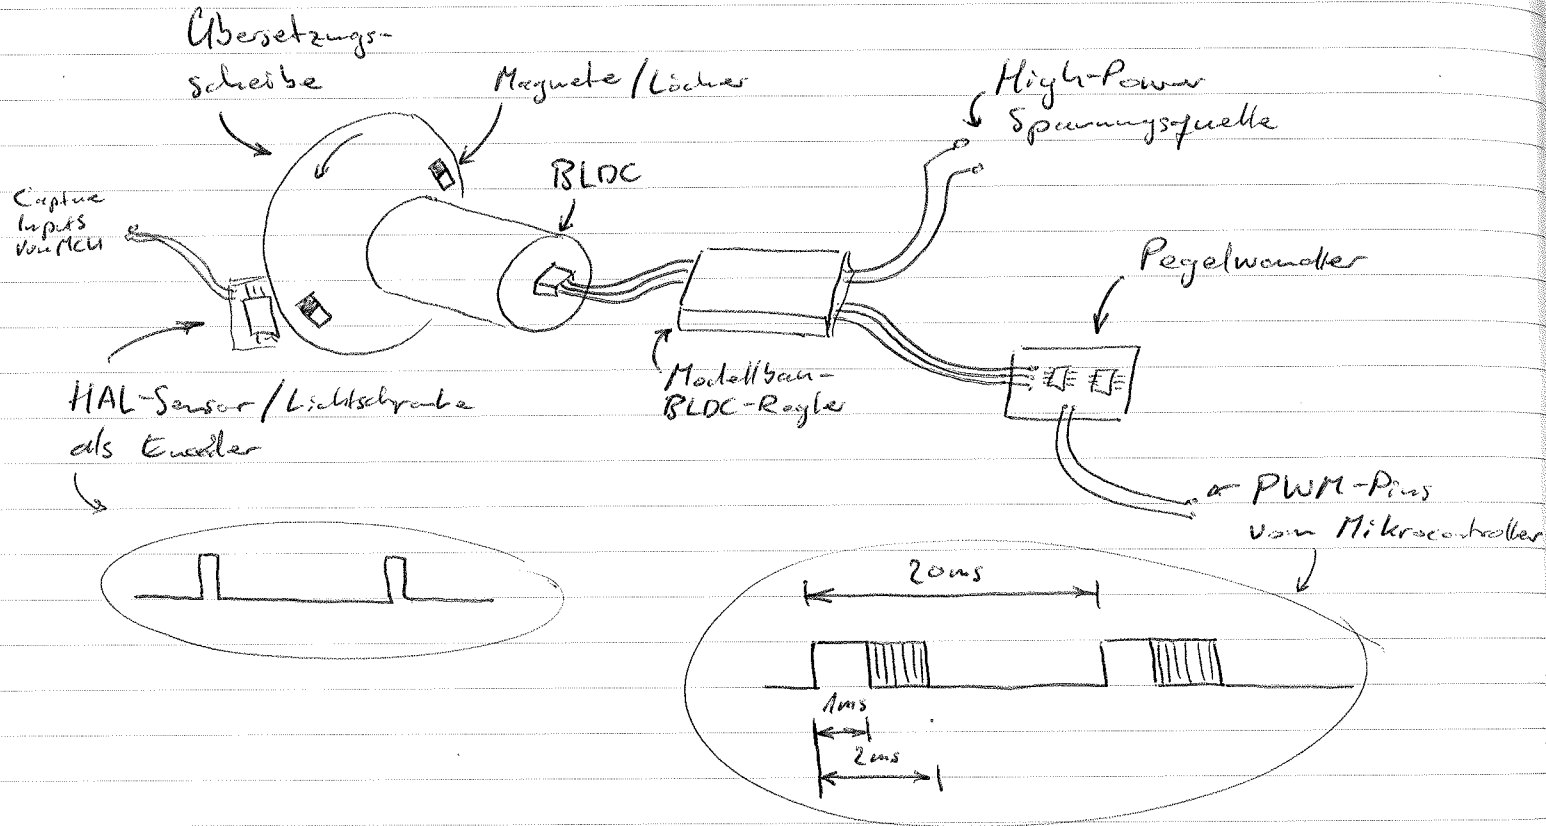 Übersetzungs-
scheibe
Magnete/Löcher
High-Power
Spannungsquelle
BLDC
Capture
Inputs
von MCU
Pegelwandler
Modellbau-
BLDC-Regler
HAL-Sensor/Lichtschranke
als Encoder
PWM-Pins
vom Mikrocontroller
20ms
1ms
2ms